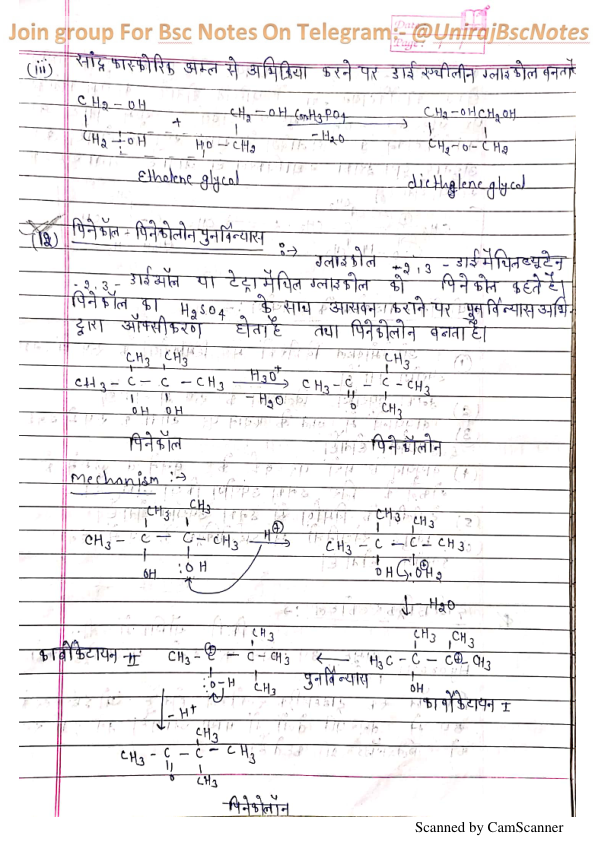 Join group For Bsc Notes On Telegram - @UnirajBscNotes
(iii) सांद्र फास्फोरिक अम्ल से अभिक्रिया करने पर डाई एथीलीन ग्लाइकोल बनता है
CH2 - OH
CH2 - OH + CH2 - OH HO - CH2 Con H3PO4 -H2O → CH2 - OH CH2OH CH2 - O - CH2
Ethelene glycol diethylene glycol
(12) पिनेकॉल - पिनेकोलोन पुनर्विन्यास :→ ग्लाइकोल - 2,3 - डाईमेथिलब्यूटेन
- 2,3 - डाईऑल या टेट्रामेथिल ग्लाइकोल को पिनेकोल कहते है।
पिनेकॉल का H2SO4 के साथ आसवन कराने पर पुनर्विन्यास अभि-
द्वारा ऑक्सीकरण होता है तथा पिनेकोलोन बनता है।
CH3 CH3 CH3
CH3 - C - C - CH3 H3O+ → -H2O CH3 - C - C - CH3
OH OH O CH3
पिनेकॉल पिनेकॉलोन
Mechanism :→
CH3 CH3 CH3 CH3
CH3 - C - C - CH3 H⊕ → CH3 - C - C - CH3
OH :OH OH :OH2 ⊕
↓ H2O
CH3 CH3 CH3
कार्बोकेटायन II CH3 - C⊕ - C - CH3 ← H3C - C - C⊕ - CH3
:O-H CH3 पुनर्विन्यास OH कार्बोकेटायन I
↓ -H+
CH3
CH3 - C - C - CH3
O CH3
पिनेकोलॉन
Scanned by CamScanner